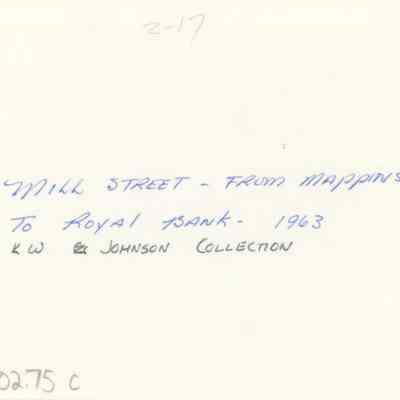 2-17
Mill Street - From Mappins
To Royal Bank - 1963
KW & Johnson Collection
02.75 C